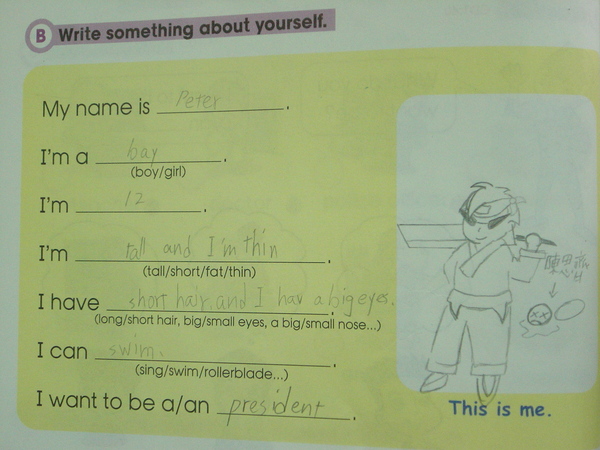 B Write something about yourself.
My name is Peter.
I'm a bay.
(boy/girl)
I'm 12.
I'm tall and I'm thin.
(tall/short/fat/thin)
I have short hair, and I hav a big eyes.
(long/short hair, big/small eyes, a big/small nose...)
I can swim.
(sing/swim/rollerblade...)
I want to be a/an president.
This is me.